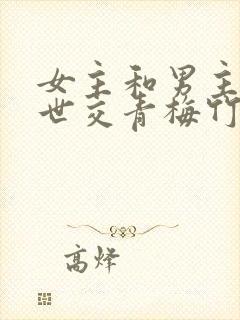 女主和男主
世交青梅竹
高烽